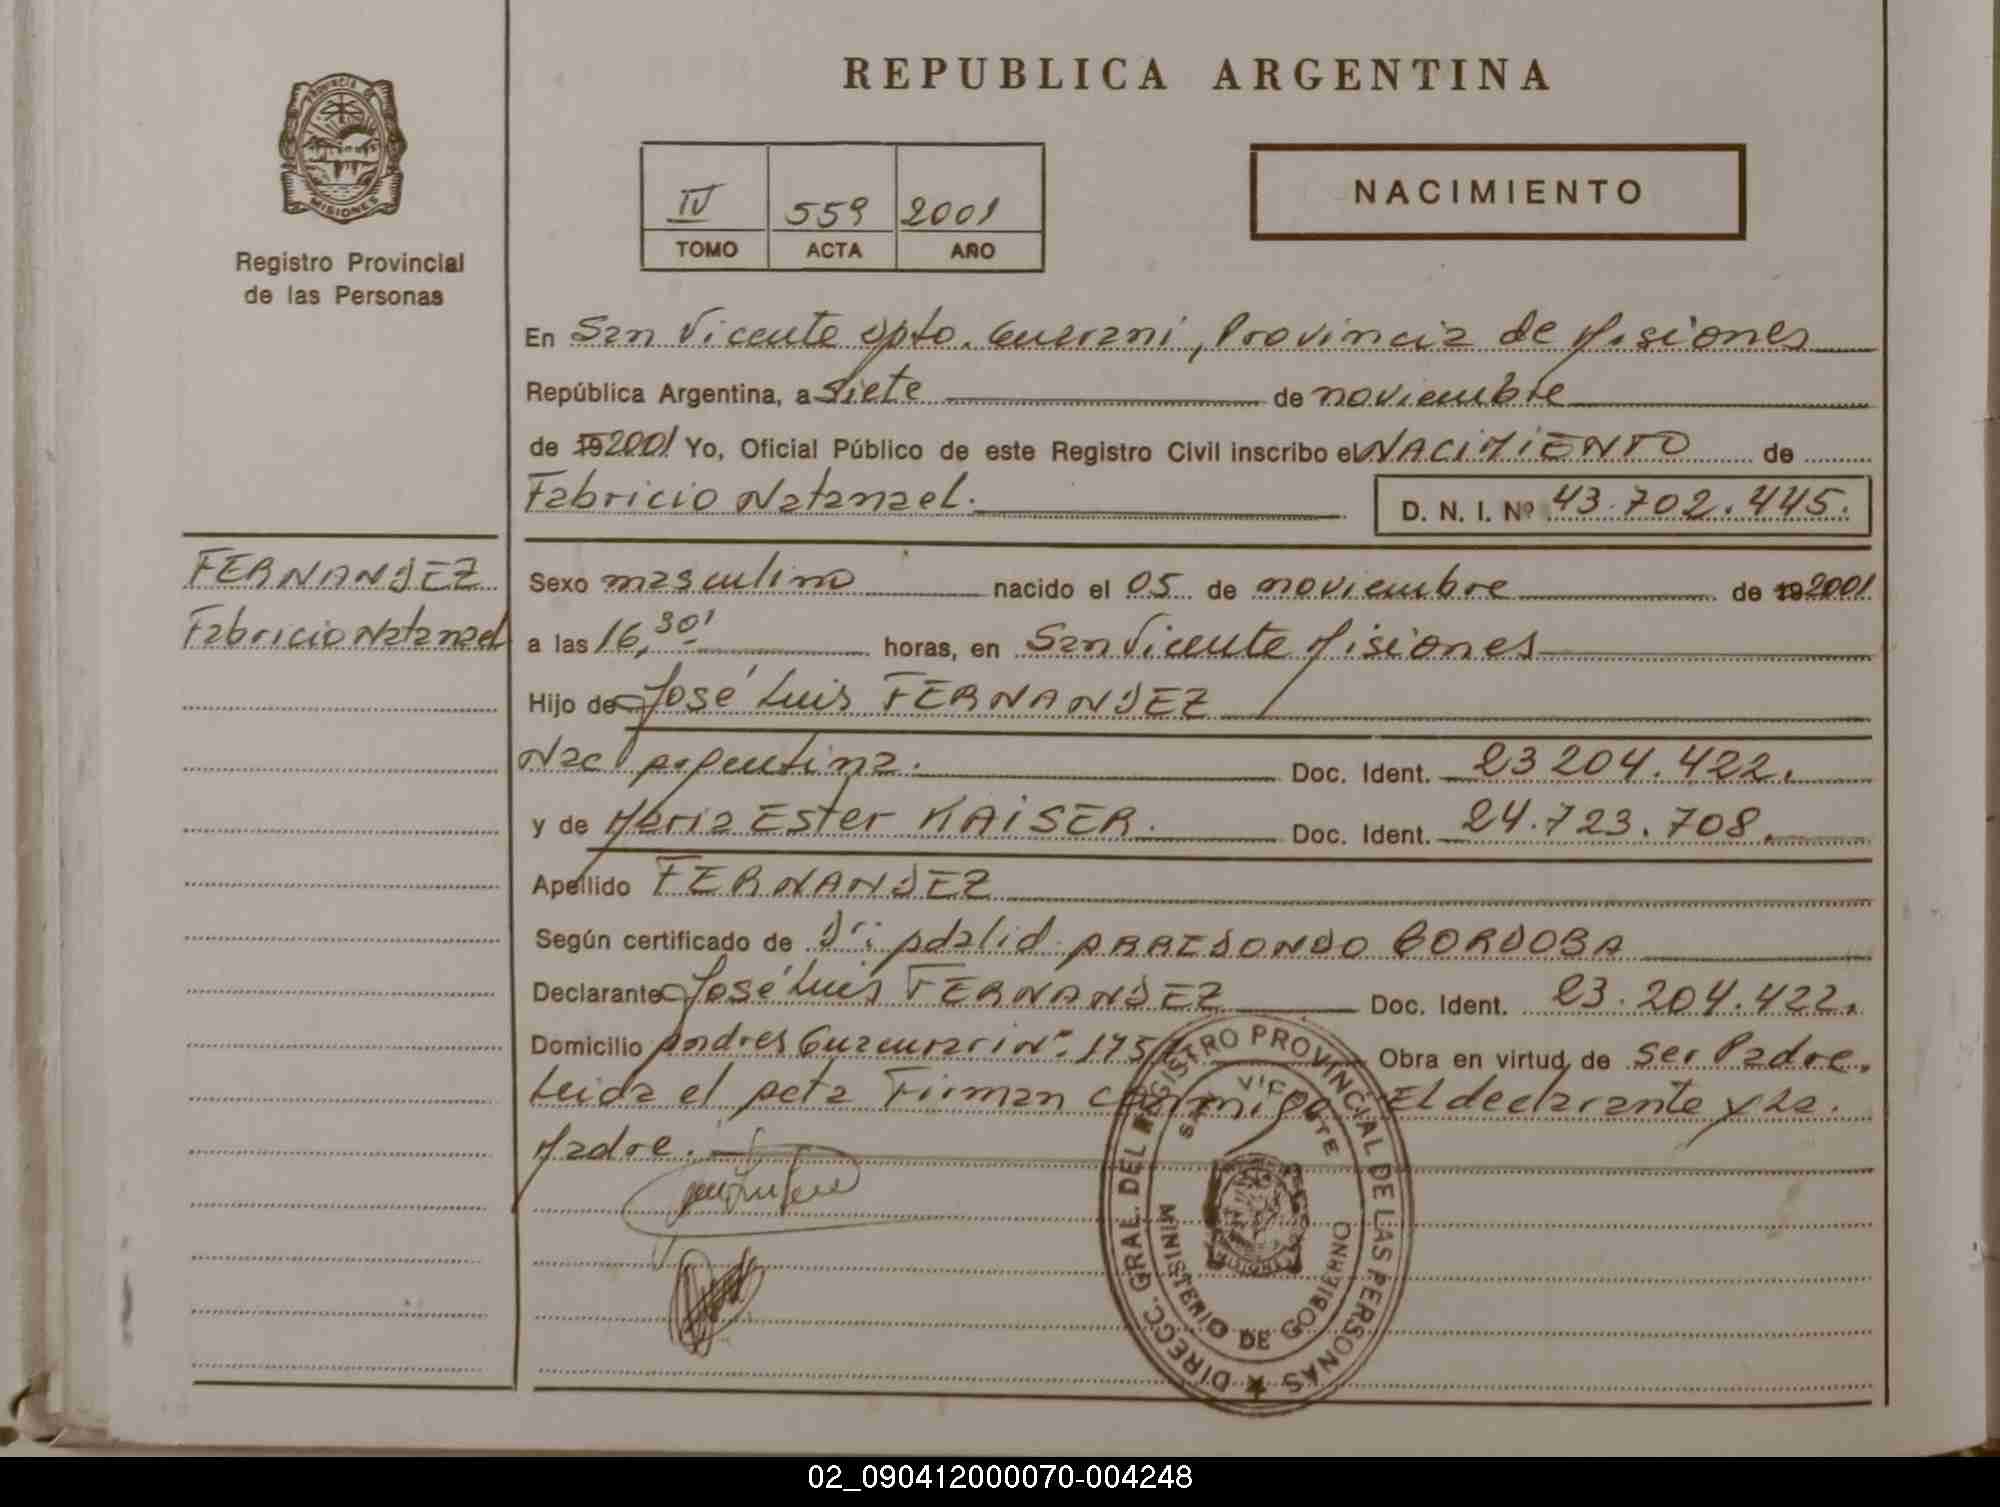 REPUBLICA ARGENTINA
PROVINCIA DE
MISIONES
Registro Provincial
de las Personas
IV 559 2001
TOMO ACTA AÑO
NACIMIENTO
En San Vicente Dpto. Guarani, Provincia de Misiones
República Argentina, a Siete de noviembre
de 19 2001 Yo, Oficial Público de este Registro Civil inscribo el NACIMIENTO de
Fabricio Natanael.
D. N. I. Nº 43.702.445.
FERNANDEZ
Fabricio Natanael
Sexo masculino nacido el 05 de noviembre de 19 2001
a las 16,30' horas, en San Vicente Misiones
Hijo de José Luis FERNANDEZ
Nac. Argentina. Doc. Ident. 23 204.422.
y de Maria Ester KAISER. Doc. Ident. 24.723.708.
Apellido FERNANDEZ
Según certificado de Dr: Adalid ARREDONDO CORDOBA
Declarante José Luis FERNANDEZ Doc. Ident. 23.204.422.
Domicilio Andres Guacurari Nº 175 Obra en virtud de ser Padre.
Leida el Acta Firman conmigo El declarante y La.
Madre.
DIRECC. GRAL. DEL REGISTRO PROVINCIAL DE LAS PERSONAS
SAN VICENTE
MINISTERIO DE GOBIERNO
02_090412000070-004248